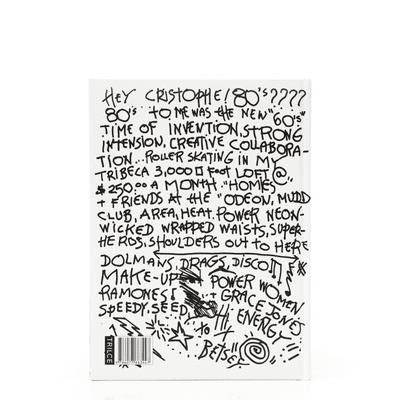 HEY CRISTOPHE! 80's????
80's TO ME WAS the NEW "60's"
TIME OF INVENTION, STRONG
INTENSION, CREATIVE COLLABORA-
TION... ROLLER SKATING IN MY
TRIBECA 3,000 □ FOOT LOFT @..
$250.00 A MONTH. "HOMIES"
+ FRIENDS AT the "ODEON, MUDD
CLUB, AREA, HEAT. POWER NEON-
WICKED WRAPPED WAISTS, SUPER-
HEROS, SHOULDERS OUT TO HERE
DOLMANS, DRAGS, DISCO
MAKE-UP POWER WOMEN
RAMONES! + GRACE JONES
SPEEDY, SEED HI ENERGY
to
BETSEY
TRILCE